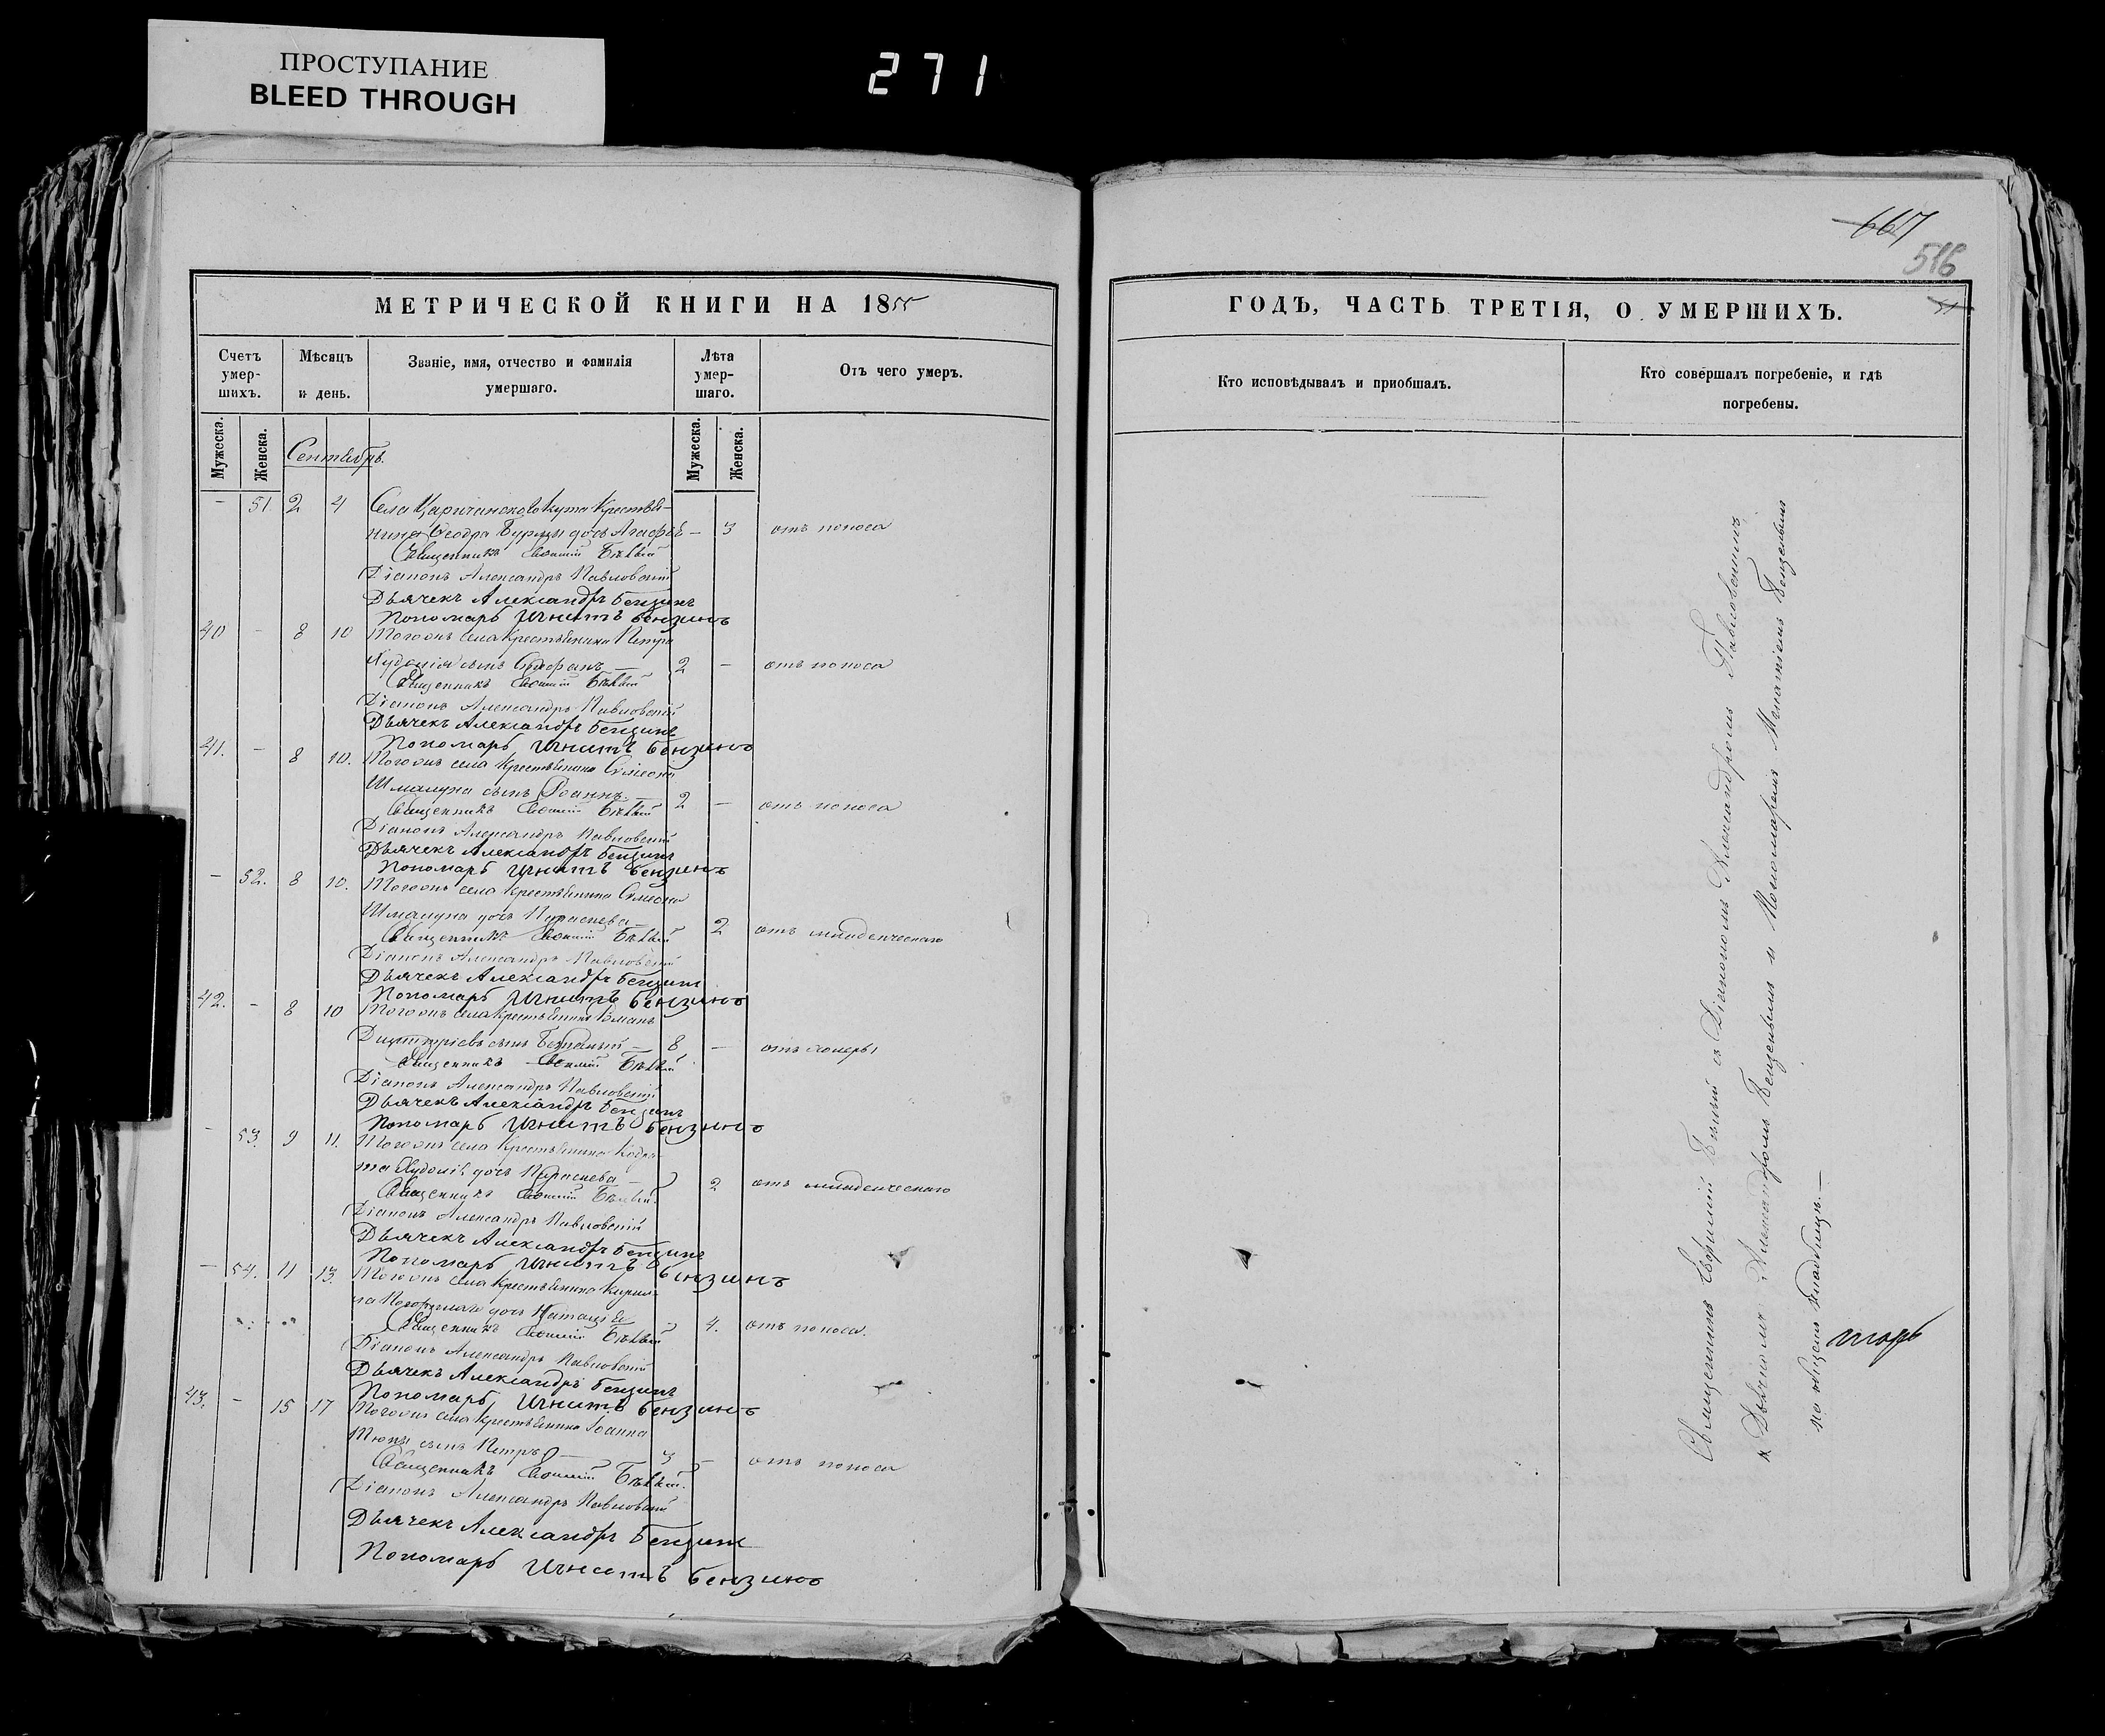 ПРОСТУПАНИЕ
BLEED THROUGH
271
667
516
51
МЕТРИЧЕСКОЙ КНИГИ НА 1855
ГОДЪ, ЧАСТЬ ТРЕТІЯ, О УМЕРШИХЪ.
Счетъ умер-шихъ.
Мѣсяцъ и день.
Званіе, имя, отчество и фамилія умершаго.
Лѣта умер-шаго.
Отъ чего умеръ.
Кто исповѣдывалъ и пріобщалъ.
Кто совершалъ погребеніе, и гдѣ погребены.
Мужеска.
Женска.
Мужеска.
Женска.
Сентябрь.
- 51 2 4 Села Царичанскаго Кута Крестья-
нина Ѳеодра дочь Агафья - 3 отъ поноса
Священникъ Евѳимій Бѣлый
Діаконъ Александръ Павловскій
Дьячекъ Александръ Бензинъ
Пономарь Игнатъ Бензинъ
40 - 8 10 Тогожъ села Крестьянина Петра
Худолія сынъ Стефанъ 2 - отъ поноса
Священникъ Евѳимій Бѣлый
Діаконъ Александръ Павловскій
Дьячекъ Александръ Бензинъ
Пономарь Игнатъ Бензинъ
41. - 8 10. Тогожъ села Крестьянина Симеона
Шмалуна сынъ Іоаннъ 2 - отъ поноса
Священникъ Евѳимій Бѣлый
Діаконъ Александръ Павловскій
Дьячекъ Александръ Бензинъ
Пономарь Игнатъ Бензинъ
- 52. 8 10. Тогожъ села Крестьянина Симеона
Шмалуна дочь Параскева 2 отъ младенческаго
Священникъ Евѳимій Бѣлый
Діаконъ Александръ Павловскій
Дьячекъ Александръ Бензинъ
Пономарь Игнатъ Бензинъ
42. - 8 10 Тогожъ села Крестьянинъ
сынъ 8 - отъ холеры
Священникъ Евѳимій Бѣлый
Діаконъ Александръ Павловскій
Дьячекъ Александръ Бензинъ
Пономарь Игнатъ Бензинъ
- 53. 9 11. Тогожъ села Крестьянина Кодра-
та Худолія дочь Параскева 2 отъ младенческаго
Священникъ Евѳимій Бѣлый
Діаконъ Александръ Павловскій
Дьячекъ Александръ Бензинъ
Пономарь Игнатъ Бензинъ
- 54. 11 13. Тогожъ села Крестьянина Кирил-
ла дочь 4. отъ поноса.
Священникъ Евѳимій Бѣлый
Діаконъ Александръ Павловскій
Дьячекъ Александръ Бензинъ
Пономарь Игнатъ Бензинъ
43. - 15 17 Тогожъ села Крестьянина Іоанна
Тюпы сынъ Петръ 3 - отъ поноса
Священникъ Евѳимій Бѣлый.
Діаконъ Александръ Павловскій
Дьячекъ Александръ Бензинъ
Пономарь Игнатъ Бензинъ
Священникъ Евѳимій Бѣлый съ Діакономъ Александромъ Павловскимъ
и Дьячкомъ Александромъ Бензинымъ и Пономаремъ Игнатіемъ Бензинымъ
на общемъ кладбищѣ.—